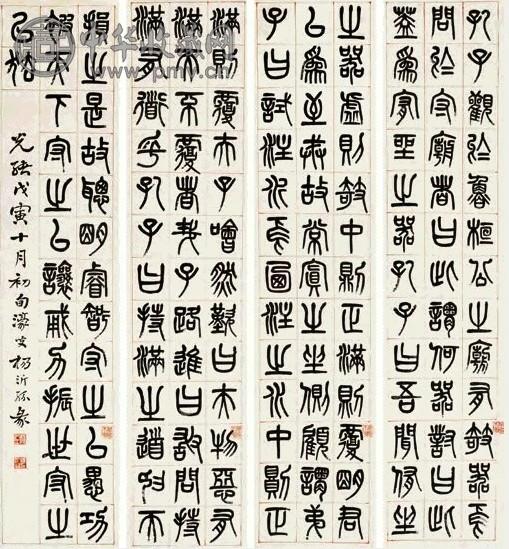 孔子觀於魯桓公之廟有欹器焉
問於守廟者曰此謂何器對曰此
蓋為宥坐之器孔子曰吾聞侑坐
之器虛則欹中則正滿則覆明君
以為至誡故常寘之坐側顧謂弟
子曰試注水焉迺注之水中則正
滿則覆夫子喟然歎曰夫物惡有
滿而不覆者哉子路進曰敢問持
滿有道乎孔子曰持滿之道挹而
損之是故聰明睿智守之以愚功
被天下守之以讓勇力振世守之
以怯
光緒戊寅十月初旬濠叟楊沂孫篆
中华收藏网